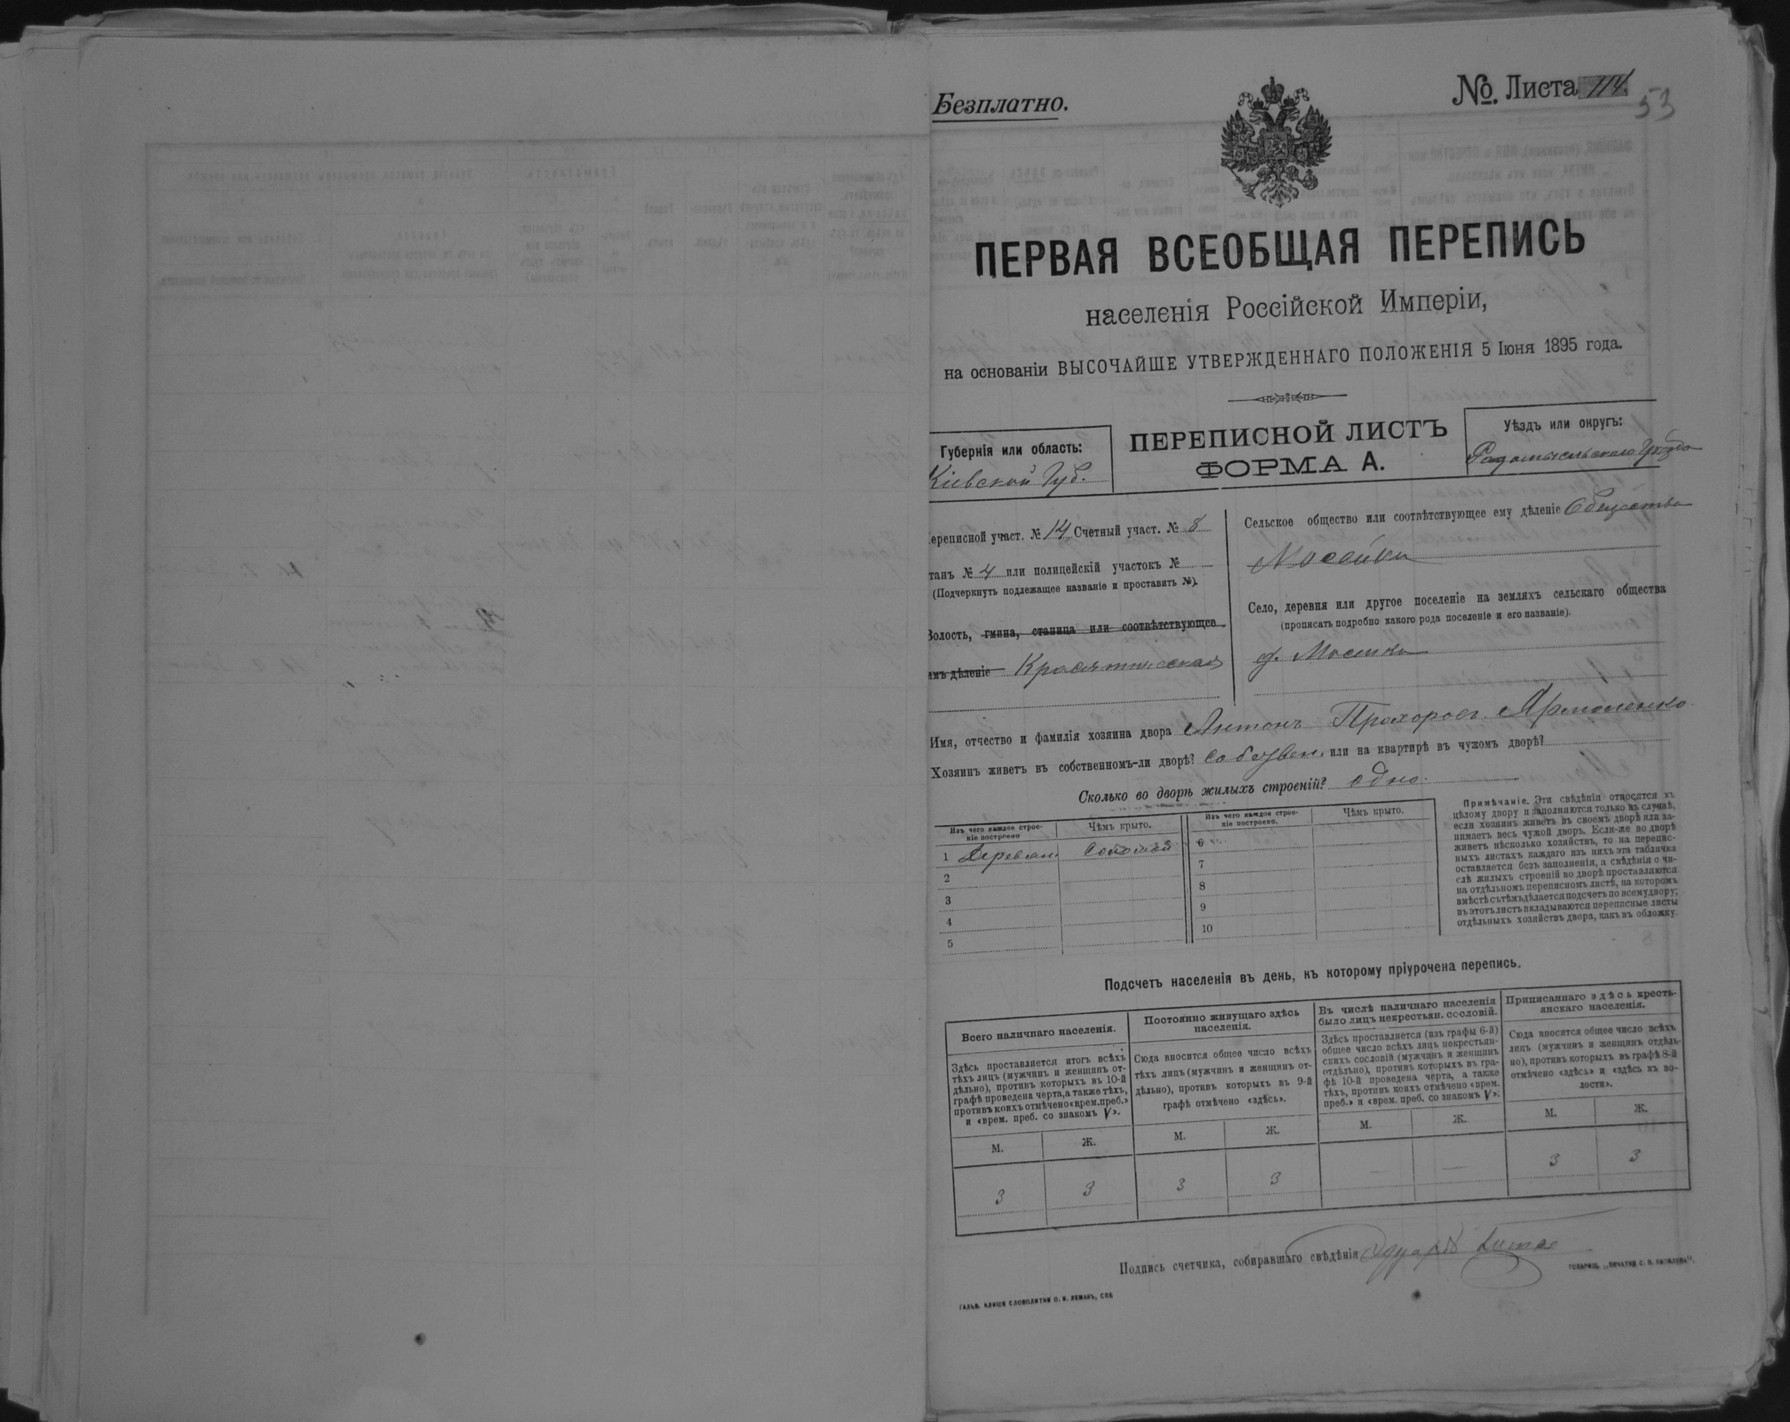 Безплатно.
№. Листа 114.
53
ПЕРВАЯ ВСЕОБЩАЯ ПЕРЕПИСЬ
населенія Россійской Имперіи,
на основаніи ВЫСОЧАЙШЕ УТВЕРЖДЕННАГО ПОЛОЖЕНІЯ 5 Іюня 1895 года.
Губернія или область:
Кіевской Губ.
ПЕРЕПИСНОЙ ЛИСТЪ
ФОРМА А.
Уѣздъ или округъ:
Радомысльского Уѣзда
ереписной участ. № 14 Счетный участ. № 8
танъ № 4 или полицейскій участокъ №
(Подчеркнуть подлежащее названіе и проставить №).
Волость, гмина, станица или соотвѣтствующее
имъ дѣленіе
Сельское общество или соотвѣтствующее ему дѣленіе Общество
Мосейки
Село, деревня или другое поселеніе на земляхъ сельскаго общества
(прописать подробно какого рода поселеніе и его названіе).
Имя, отчество и фамилія хозяина двора Антонъ Прохоровъ Ярмоленко
Хозяинъ живетъ въ собственномъ-ли дворѣ? собствен. или на квартирѣ въ чужомъ дворѣ?
Сколько во дворѣ жилыхъ строеній? одно.
Изъ чего каждое строе-
ніе построено
Чѣмъ крыто.
1 Деревян. Соломой
2
3
4
5
Изъ чего каждое строе-
ніе построено.
Чѣмъ крыто.
6
7
8
9
10
Примѣчаніе. Эти свѣдѣнія относятся къ
цѣлому двору и заполняются только въ случаѣ,
если хозяинъ живетъ въ своемъ дворѣ или за-
нимаетъ весь чужой дворъ. Если-же во дворѣ
живетъ нѣсколько хозяйствъ, то на перепис-
ныхъ листахъ каждаго изъ нихъ эта табличка
оставляется безъ заполненія, а свѣдѣнія о чи-
слѣ жилыхъ строеній во дворѣ проставляются
на отдѣльномъ переписномъ листѣ, на которомъ
вмѣстѣ съ тѣмъ дѣлается подсчетъ по всему двору;
въ этотъ листъ вкладываются переписные листы
отдѣльныхъ хозяйствъ двора, какъ въ обложку.
Подсчетъ населенія въ день, къ которому пріурочена перепись.
Всего наличнаго населенія.
Здѣсь проставляется итогъ всѣхъ
тѣхъ лицъ (мужчинъ и женщинъ от-
дѣльно), противъ которыхъ въ 10-й
графѣ проведена черта, а также тѣхъ,
противъ коихъ отмѣчено «врем. преб.»
и «врем. преб. со знакомъ V».
М. Ж.
3 3
Постоянно живущаго здѣсь
населенія.
Сюда вносится общее число всѣхъ
тѣхъ лицъ (мужчинъ и женщинъ от-
дѣльно), противъ которыхъ въ 9-й
графѣ отмѣчено «здѣсь».
М. Ж.
3 3
Въ числѣ наличнаго населенія
было лицъ некрестьян. сословій.
Здѣсь проставляется (изъ графы 6-й)
общее число всѣхъ лицъ некрестьян-
скихъ сословій (мужчинъ и женщинъ
отдѣльно), противъ которыхъ въ гра-
фѣ 10-й проведена черта, а также
тѣхъ, противъ коихъ отмѣчено «врем.
преб.» и «врем. преб. со знакомъ V».
М. Ж.
— —
Приписаннаго здѣсь кресть-
янскаго населенія.
Сюда вносится общее число всѣхъ
лицъ (мужчинъ и женщинъ отдѣль-
но), противъ которыхъ въ графѣ 8-й
отмѣчено «здѣсь» и «здѣсь въ во-
лости».
М. Ж.
3 3
Подпись счетчика, собиравшаго свѣдѣнія Эдуардъ
ГАЛЬВ. КЛИШЕ СЛОВОЛИТНИ О. И. ЛЕМАНЪ, СПБ
ТОВАРИЩ. „ПЕЧАТНЯ С. П. ЯКОВЛЕВА".